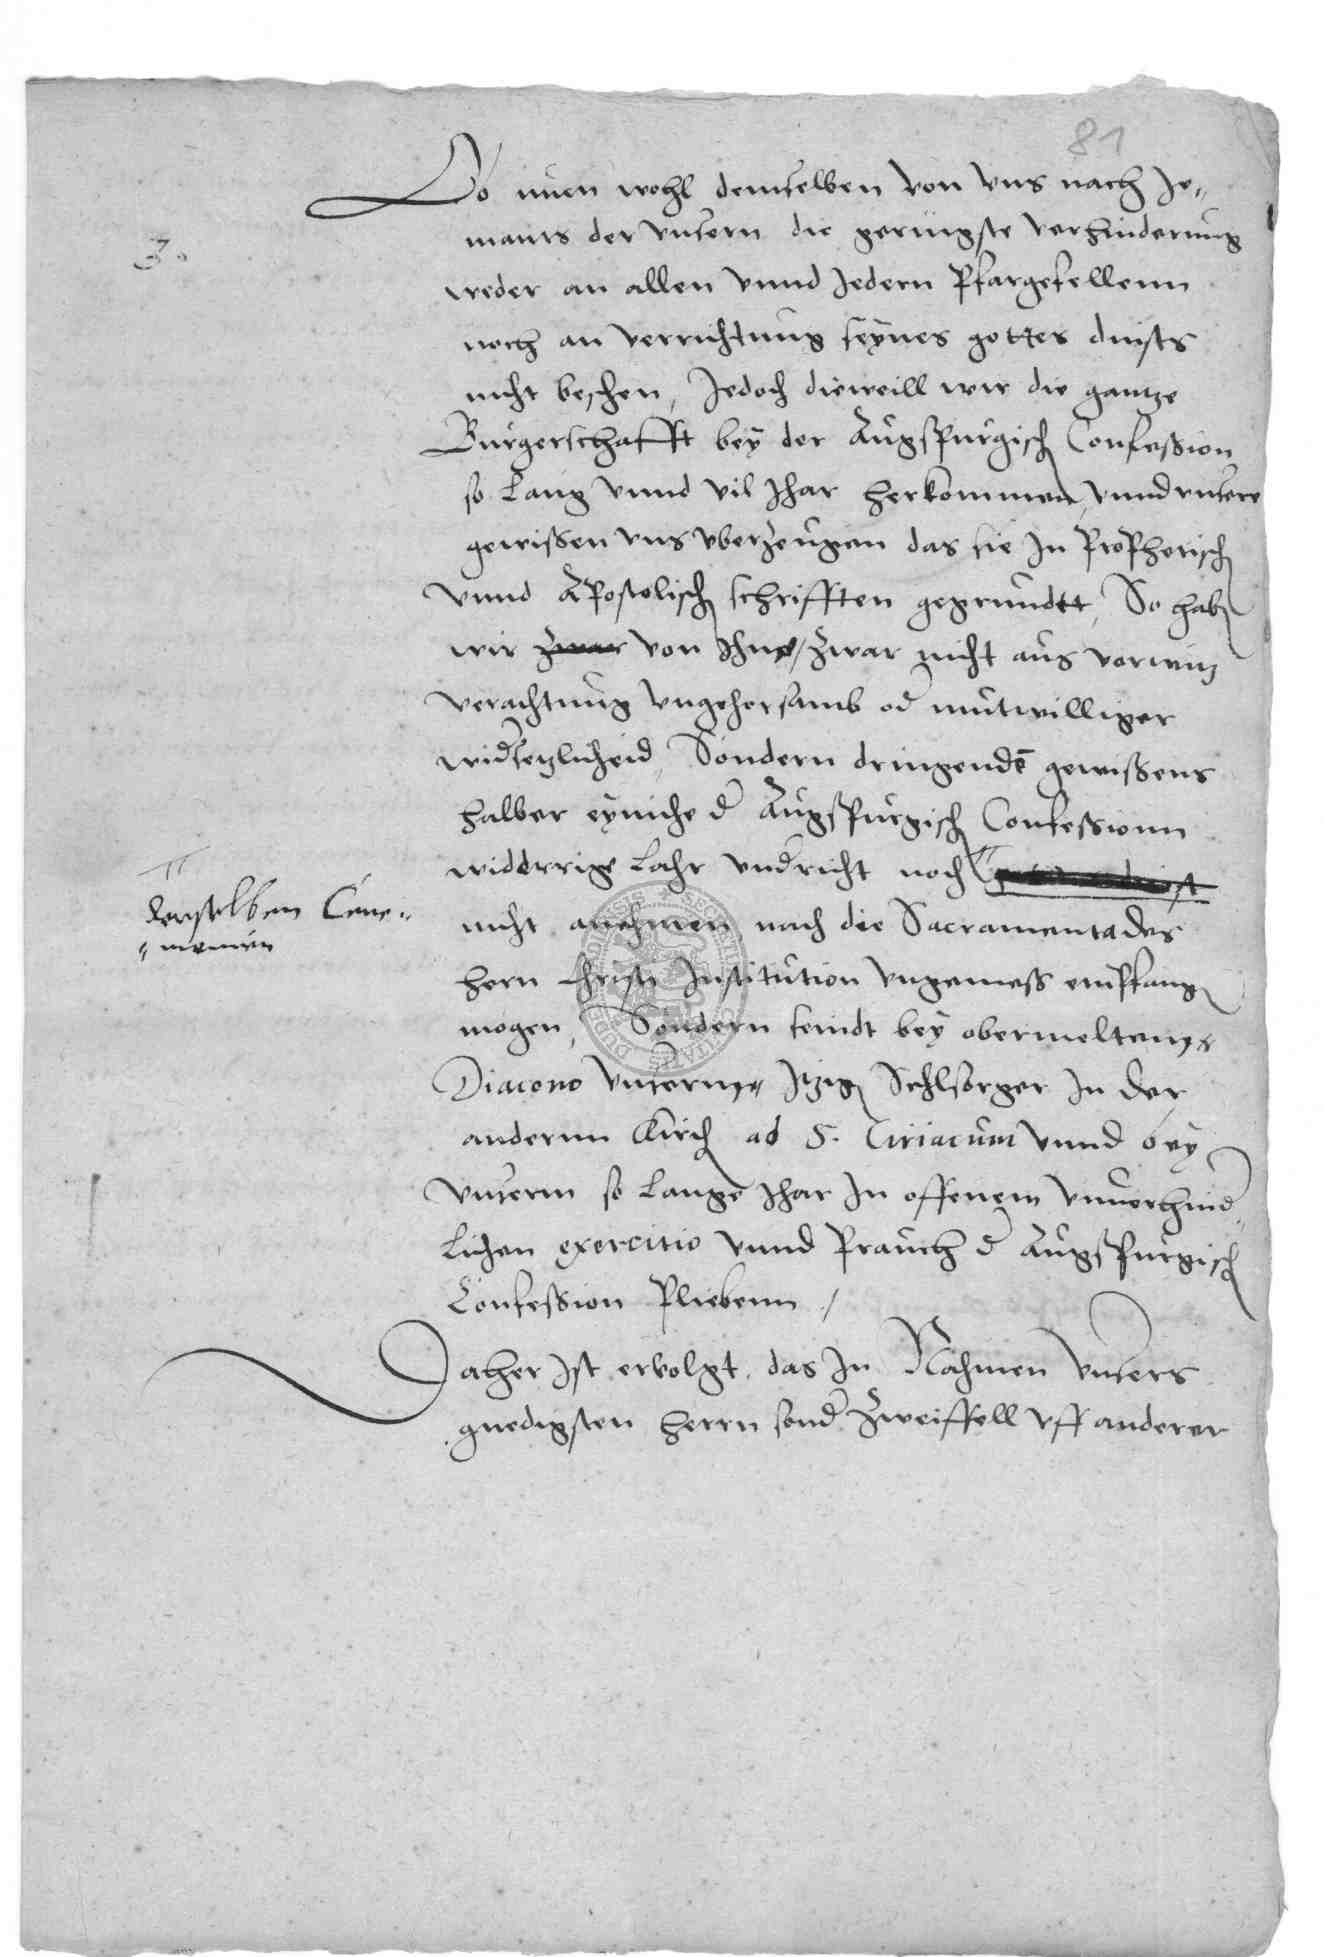 81
3.
Do nuen wohl demselben von vns nach Je-
mants der vnsern die geringste verhinderung
weder an allen vnnd Jedern Pfargefellenn
noch an verrichtung seynes gottes dinsts
nicht beschen, Jedoch dieweill wir die gantze
Burgerschafft bey der Augspurgisch Confession
so lang vnnd vil Jhar herkommen, vnnd vnsere
gewissen vns vberzeugen das sie Jn Prophetisch
vnnd Apostolisch schrifften gegrundtt, So hab
wir zwar von Jhne / zwar nicht aus vorwitz
verachtung vngehorsamb od mutwilliger
widsetzlicheid, Sondern dringende gewissens
halber eyniche d Augspurgisch Confessionn
widderrige Lahr vndricht noch
derselben Cere-
monien
nicht anehmen nach die Sacramenta des
hern Christi Institution vngemess empfang
mogen, Sondern seindt bey obermeltem
Diacono vnserm Jtzig Sehlsorger Jn der
andernn Kirch ad S. Ciriacum vnnd bey
vnserm so lange Jhar Jn offenem vnuerhind-
lichen exercitio vnnd Prauch d Augspurgisch
Confession Pliebenn /
Daher Jst ervolgt, das Jn Nahmen vnsers
gnedigsten Herrn sond Zweiffell vff anderer